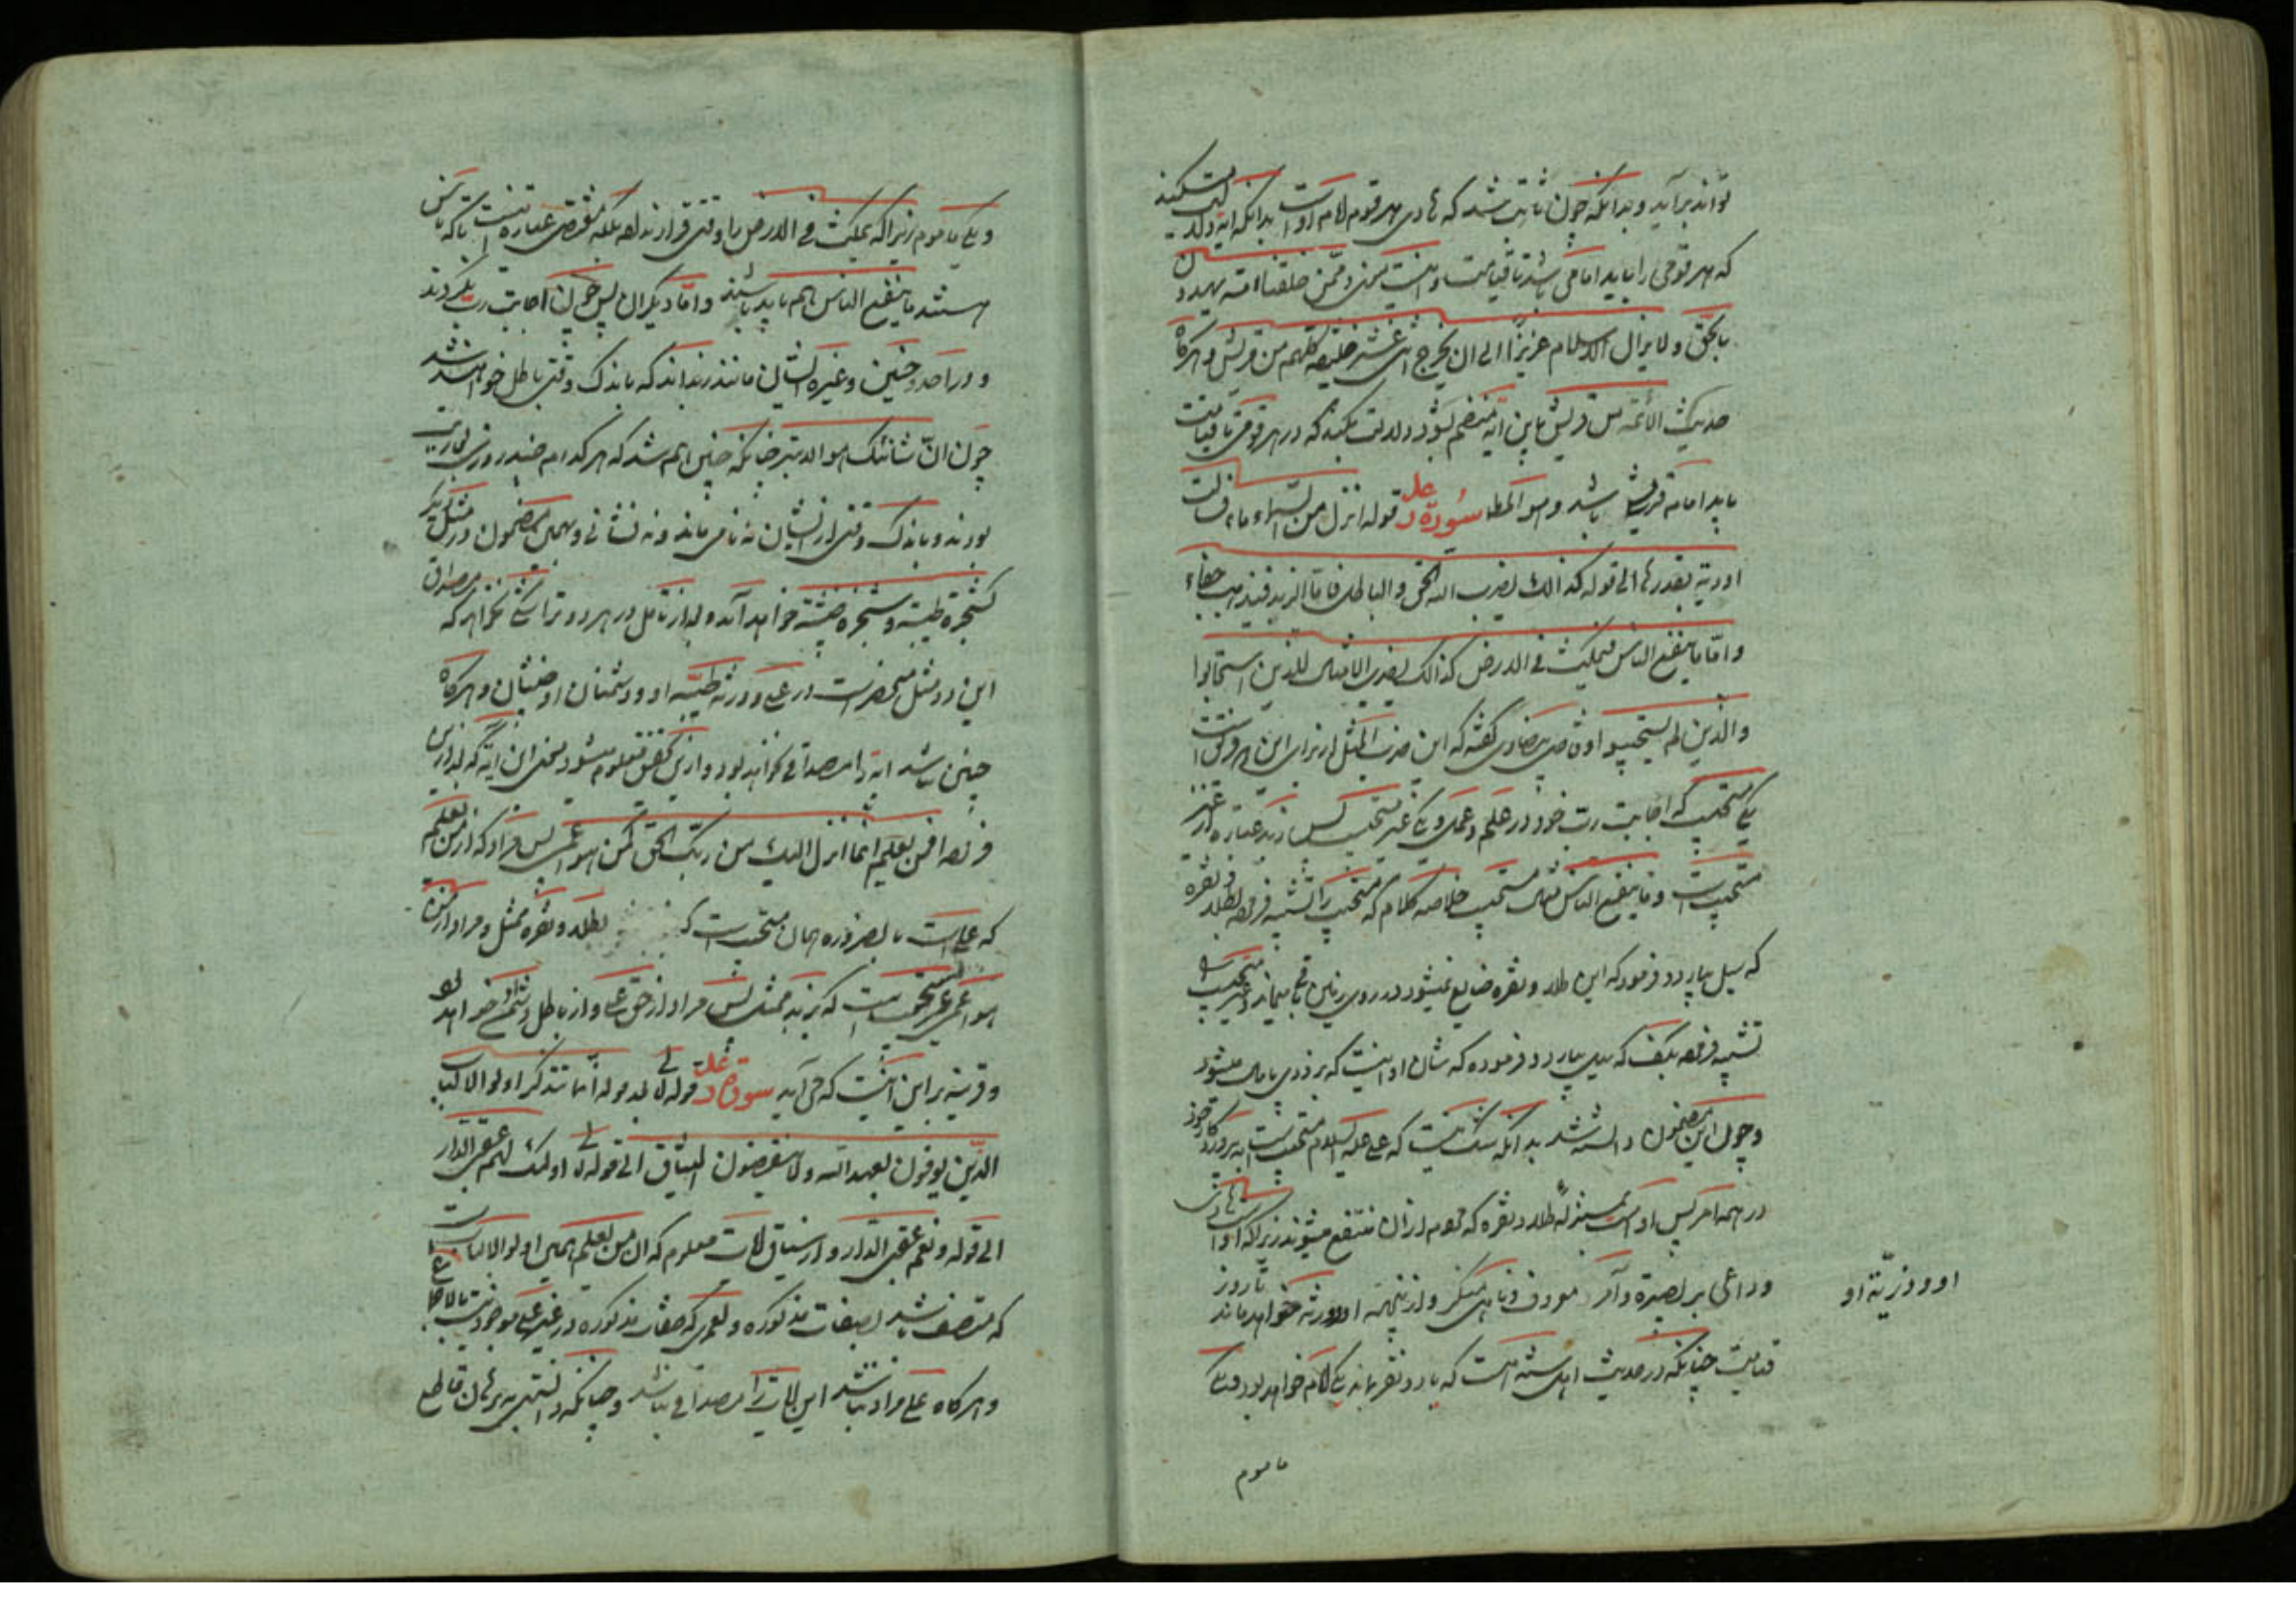 تواند برآید و بدانکه چون ثابت شد که هادی هر قوم امام اوست بدانکه این آیه دلالت میکند
که هر قومی را باید امامی باشد تا قیامت و ممن خلقنا امة یهدون
بالحق و لا یزال الاسلام عزیزا الی ان یخرج اثنی عشر خلیفه کلهم من قریش و هرگاه
حدیث الائمه من قریش باین آیه منضم شود دلالت میکند که در هر قومی تا قیامت
باید امامه قریش باشد و هو المطل سورة رعد قوله انزل من السماء ماء فسالت
اودیة بقدرها الی قوله کذالک یضرب الله الحق والباطل فاما الزبد فیذهب جفاء
و اما ما ینفع الناس فیمکث فی الارض کذالک یضرب الامثال للذین استجابوا
والذین لم یستجیبوا و قاضی بیضاوی گفته که این ضرب المثل از برای این هر دو فرقه است
یکی مستجیب که اجابت رب خود در علم و عمل و یکی غیر مستجیب پس زبد عبارة از غیر
مستجیب است و ما ینفع الناس مثال مستجیب خلاصه کلام که مستجیب را تشبیه فرموده بطلا و نقره
که سیل بیاورد و فرمود که این طلا و نقره ضایع نمیشود در روی زمین باقی میماند و غیر مستجیب را
تشبیه فرموده بکف که سیل بیاورد و فرموده که شان او اینست که بزودی باطل میشود
و چون این مضمون دانسته شد بدانکه شک نیست که علی علیه السلام مستجیب است به پروردگار خود
در همه امر پس او است بمنزله طلا و نقره که مردم از آن منتفع میشوند زیرا که او است هادی
و داعی بر بصیرة و آمر معروف و ناهی منکر و از نیجهة او و ورثه خواهد ماند تا روز
او و ذریّه او
قیامت چنانکه در حدیث اهل سنة است که تا دو نفر بماند یکی امام خواهد بود و یکی
ماموم
و یکی ماموم زیرا که یمکث فی الارض را وقتی قرار نداده بلکه مقتضی عبارة اینست تا که ناس
هستند ما ینفع الناس هم باید باشند و اما دیگران پس چون اجابت رب نکردند
و در احد و حنین و غیره ایشان مانند زبداند که باندک وقتی باطل خواهند شد
چون انّ شانئک هو الابتر چنانکه چنین هم شد که هرکدام چند روزی
بودند و باندک وقتی از ایشان نه نامی ماند و نه نشانی و همین مضمون در مثل دیگر
کشجرة طیبة و شجره خبیثة خواهد آمد و بعد از تامل در هر دو ترا شکی نخواهد که مصداق
این دو مثل منحصر است در علی و ورثه طیّبه او و دشمنان او خبیثان و هرگاه
چنین نباشد آیه را مصداقی نخواهد بود و از این گفتن معلوم میشود معنی این آیه که بعد از این
فرموده افمن یعلم انما انزل الیک من ربک الحق کمن هو اعمی پس مراد که از من یعلم
که علی است بالضروره همان مستجیب است که بطلا و نقره ممثل و مراد از من
هو اعمی غیر مستجیب است که بزبد ممثل پس مراد از حق علی و از باطل دشمن او خواهد بود
و قرینه بر این آنست که می آید سورة رعد قوله تعالی بعد قوله انما یتذکر اولوا الالباب
الذین یوفون بعهد الله و لا ینقضون المیثاق الی قوله تعالی اولئک لهم عقبی الدار
الی قوله و نعم عقبی الدار و از سیاق آیات معلوم که ان من یعلم همان اولوا الالباب است
که متصف باشد بصفات مذکوره و لعمری که صفات مذکوره در غیر علی موجود نیست بالاجماع
و هرگاه علی مراد نباشد این آیات را مصداقی نباشد و چنانکه دانستی ببرهان قاطع